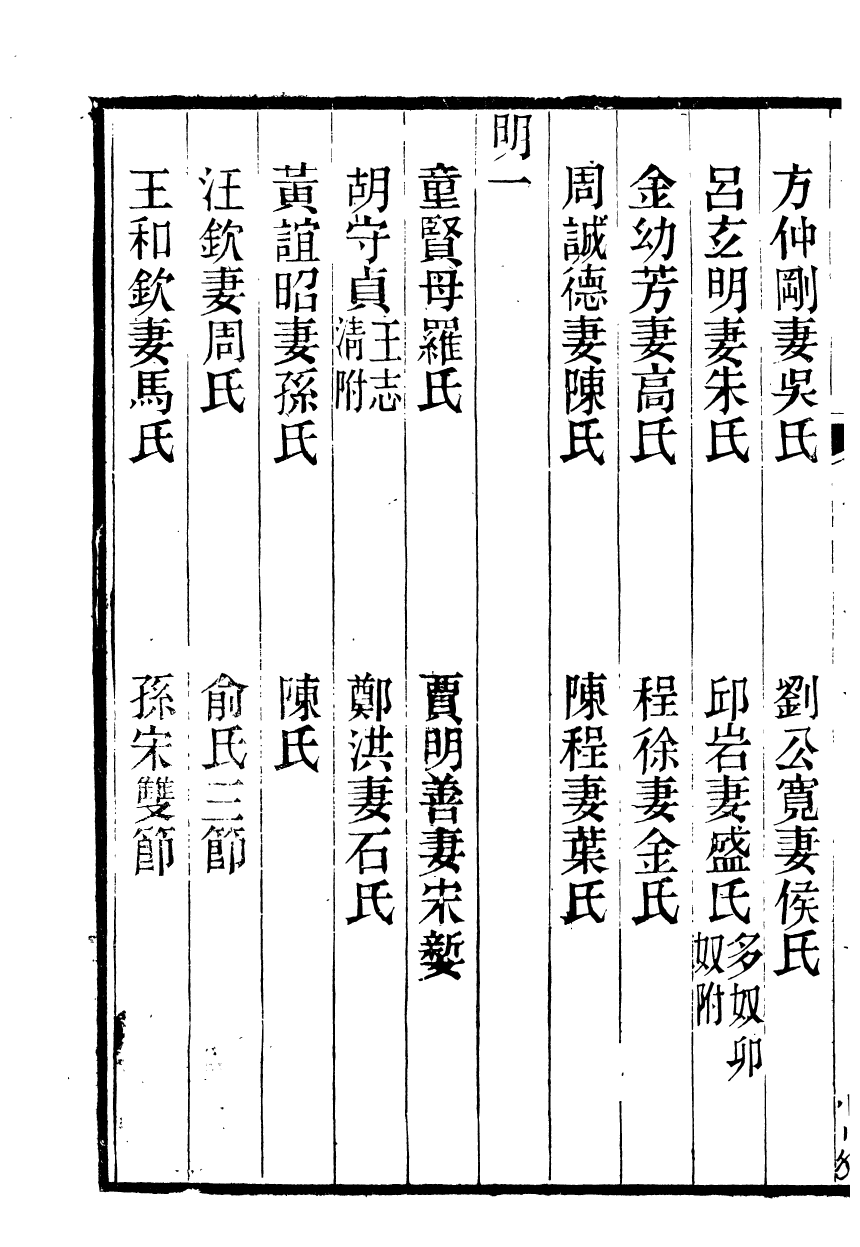 方仲剛妻吳氏　劉公寬妻侯氏
呂玄明妻朱氏　邱岩妻盛氏多奴卯奴附
金幼芳妻高氏　程徐妻金氏
周誠德妻陳氏　陳程妻葉氏
明一
童賢母羅氏　賈明善妻宋㜞
胡守貞王志淸附　鄭洪妻石氏
黃誼昭妻孫氏　陳氏
汪欽妻周氏　俞氏三節
王和欽妻馬氏　孫宋雙節